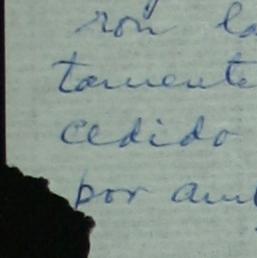 ron la
tamente
cedido
por am